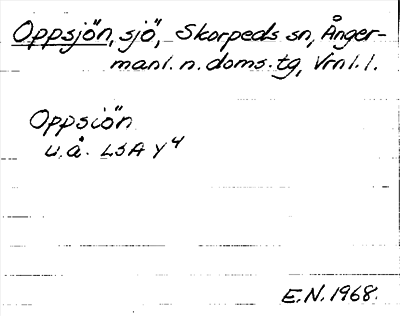 Oppsjön, sjö, Skorpeds sn, Ånger-
manl. n. doms. tg, Vrnl. l.
Oppsiön
u.å. LSA Y4
E.N. 1968.